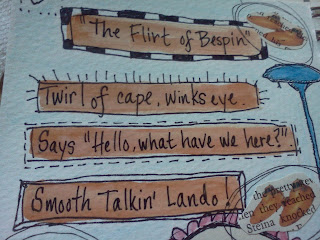 "The Flirt of Bespin"
Twirl of cape, winks eye.
Says "Hello, what have we here?".
Smooth Talkin' Lando!
the prettiest
they reached
Steina knocked